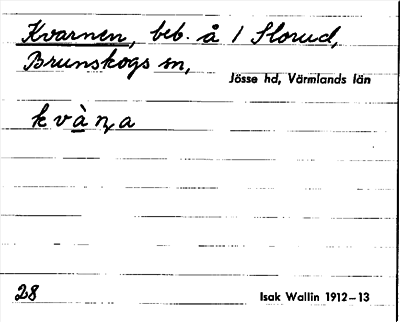 Kvarnen, beb. å 1 Slorud,
Brunskogs sn,
Jösse hd, Värmlands län
kvàṇa
28
Isak Wallin 1912–13